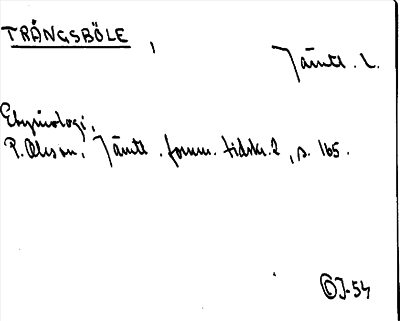 TRÅNGSBÖLE,
Jämtl. L.
Etymologi,
P. Olsson, Jämtl. fornm. tidskr. 2, s. 165.
OJ-54